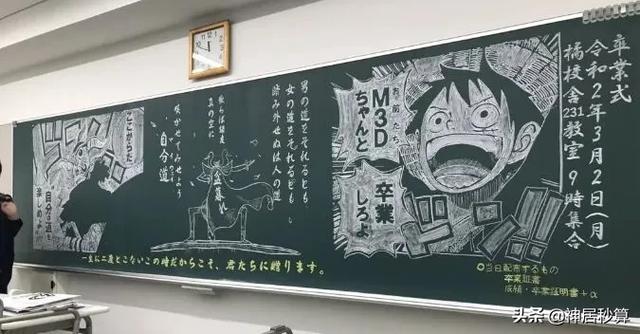 卒業式
令和2年3月2日(月)
橘校舎231教室 9時集合
お前たち
M3D
ちゃんと
卒業
しろよ
男の道をそれるとも
女の道をそれるとも
踏み外せぬは人の道
散らば諸友
真の空に
咲かせてみせよう
自分道
盆暮れ
ここからだ
自分の道を
楽しめよ!
一生に二度とこないこの時だからこそ、君たちに贈ります。
○当日配布するもの
卒業証書
成績・卒業証明書+α
头条@神居秒算